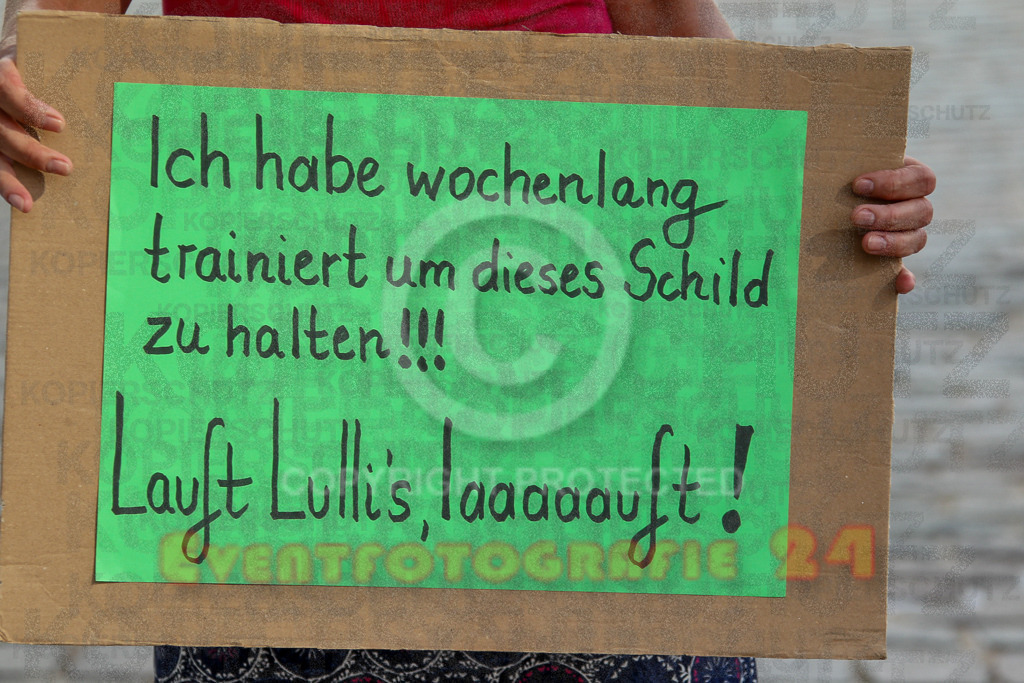 Ich habe wochenlang
trainiert um dieses Schild
zu halten!!!
Lauft Lulli's, laaaaauft!
COPYRIGHT PROTECTED
EVENTFOTOGRAFIE 24